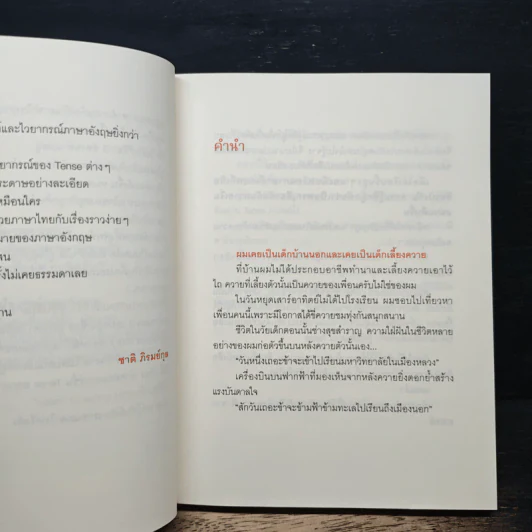 และไวยากรณ์ภาษาอังกฤษยิ่งกว่า
ยากรณ์ของ Tense ต่างๆ
ระดาษอย่างละเอียด
หมือนใคร
วยภาษาไทยกับเรื่องราวง่ายๆ
มายของภาษาอังกฤษ
ังไม่เคยธรรมดาเลย
ชาติ ภิรมย์กุล
คำนำ
ผมเคยเป็นเด็กบ้านนอกและเคยเป็นเด็กเลี้ยงควาย
ที่บ้านผมไม่ได้ประกอบอาชีพทำนาและเลี้ยงควายเอาไว้
ไถ ควายที่เลี้ยงตัวนั้นเป็นควายของเพื่อนครับไม่ใช่ของผม
ในวันหยุดเสาร์อาทิตย์ไม่ได้ไปโรงเรียน ผมชอบไปเที่ยวหา
เพื่อนคนนี้เพราะมีโอกาสได้ขี่ควายชมทุ่งกันสนุกสนาน
ชีวิตในวัยเด็กตอนนั้นช่างสุขสำราญ ความใฝ่ฝันในชีวิตหลาย
อย่างของผมก่อตัวขึ้นบนหลังควายตัวนั้นเอง...
"วันหนึ่งเถอะข้าจะเข้าไปเรียนมหาวิทยาลัยในเมืองหลวง"
เครื่องบินบนฟากฟ้าที่มองเห็นจากหลังควายยิ่งตอกย้ำสร้าง
แรงบันดาลใจ
"สักวันเถอะข้าจะข้ามฟ้าข้ามทะเลไปเรียนถึงเมืองนอก"